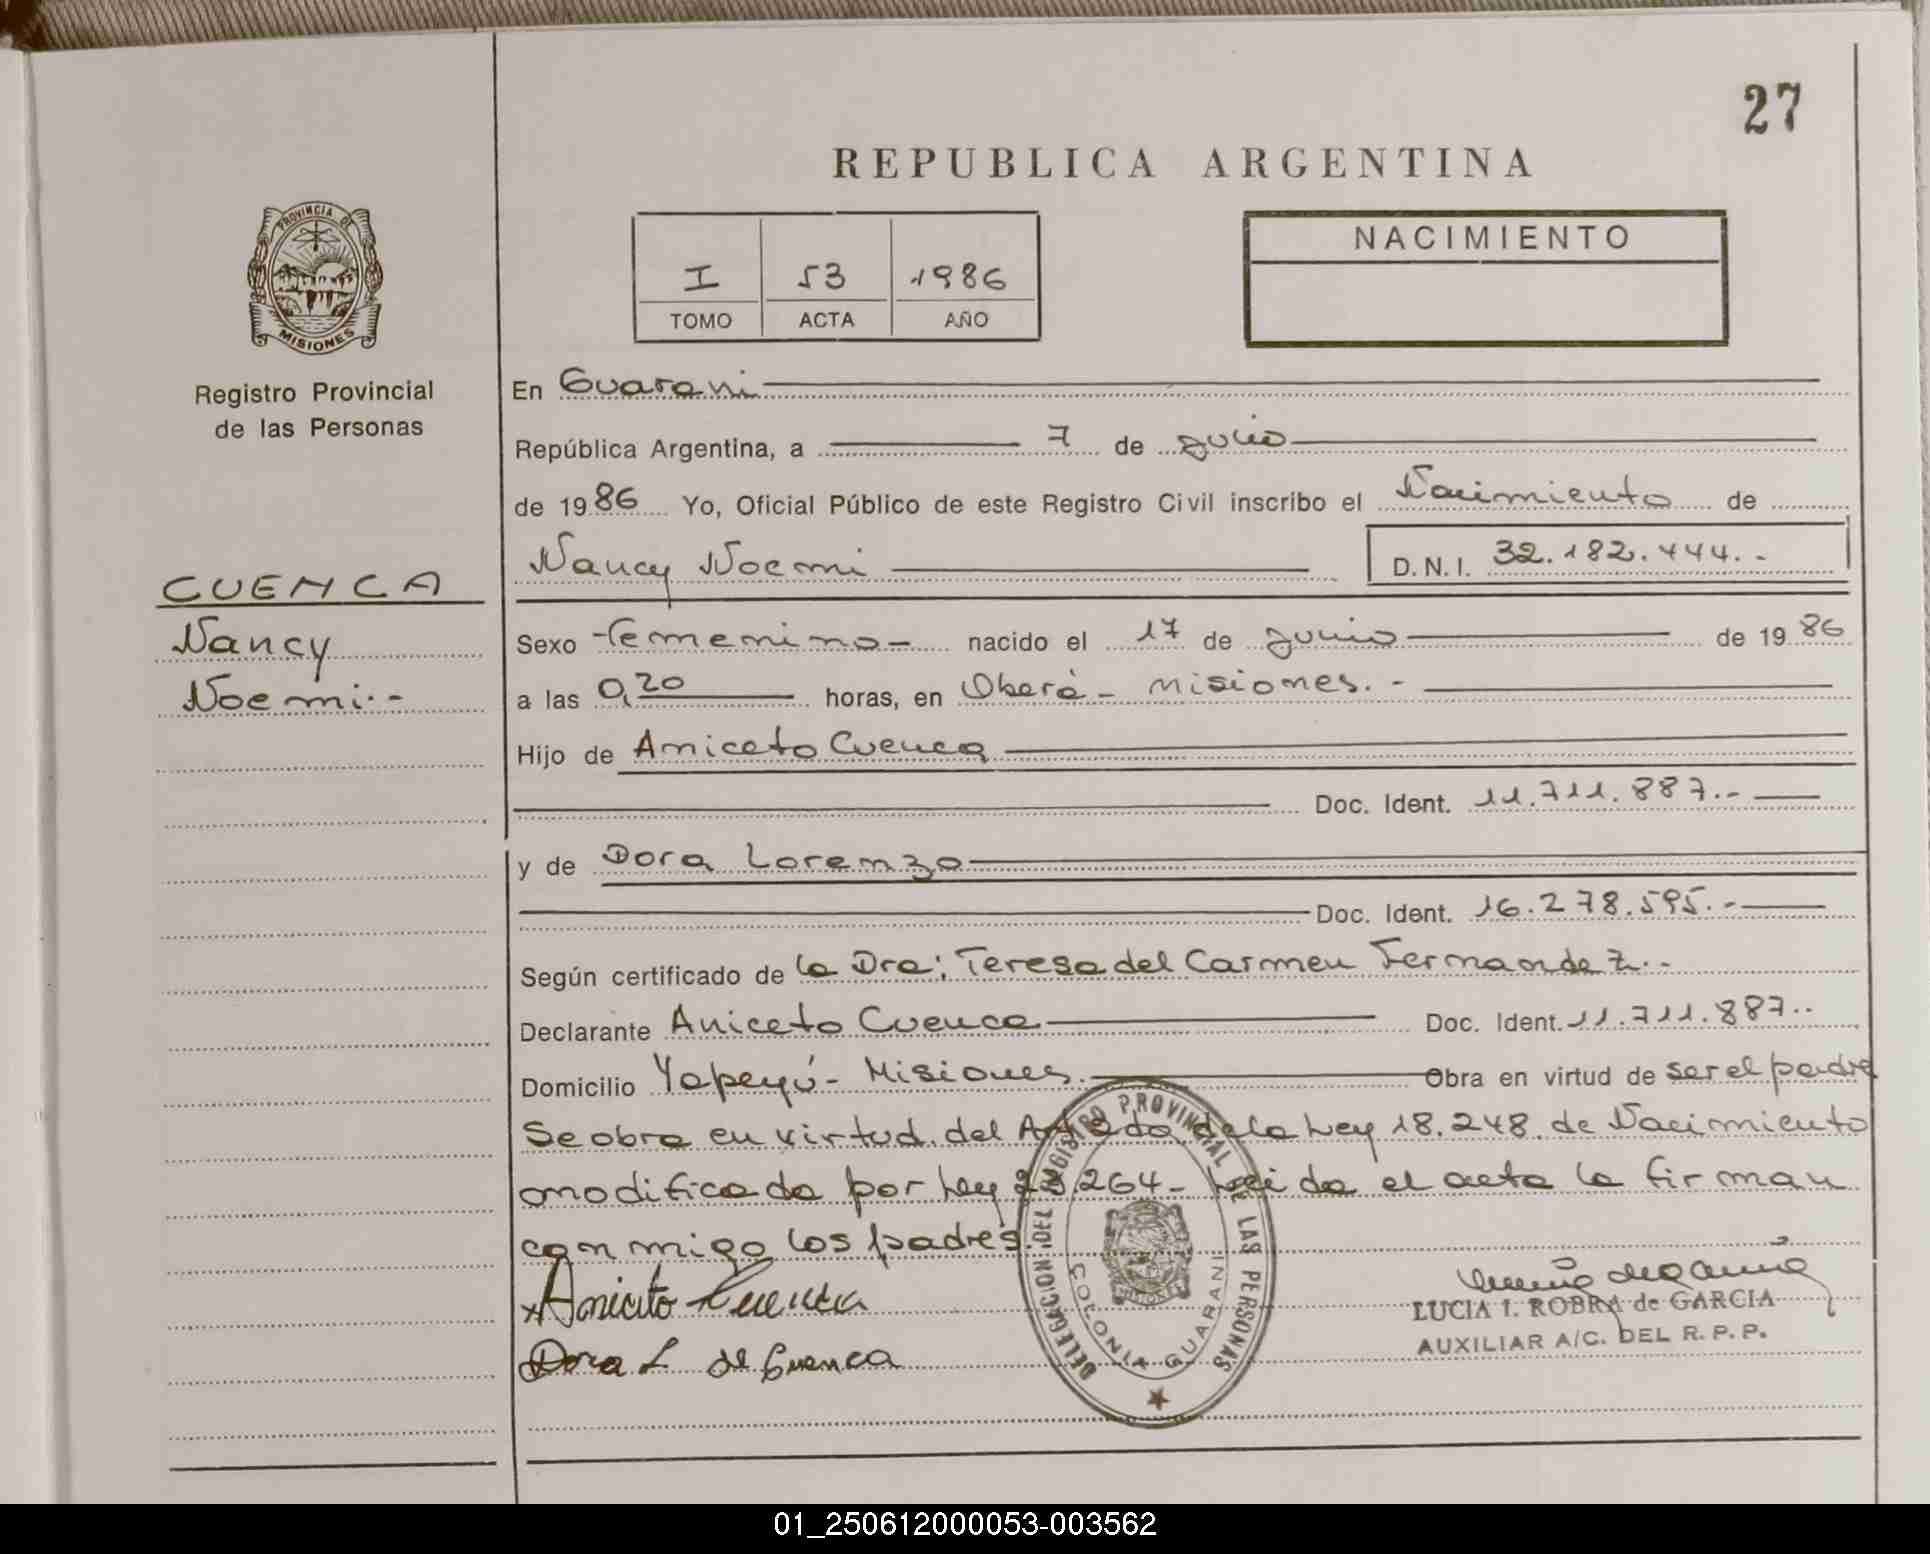 27
REPUBLICA ARGENTINA
PROVINCIA DE
MISIONES
Registro Provincial
de las Personas
I 53 1986
TOMO ACTA AÑO
NACIMIENTO
En Guarani
República Argentina, a 7 de Julio
de 1986 Yo, Oficial Público de este Registro Civil inscribo el Nacimiento de
Nancy Noemi D.N.I. 32.182.444.-
CUENCA
Nancy
Noemi.-
Sexo Femenino- nacido el 17 de Junio de 1986
a las 0,20 horas, en Oberá- Misiones.-
Hijo de Aniceto Cuenca
Doc. Ident. 11.711.887.-
y de Dora Lorenzo
Doc. Ident. 16.278.595.-
Según certificado de la Dra: Teresa del Carmen Fernandez.-
Declarante Aniceto Cuenca Doc. Ident. 11.711.887.-
Domicilio Yapeyú- Misiones. Obra en virtud de ser el padre
Se obra en virtud del de la Ley 18.248. de Nacimiento
modificada por Ley 23.264- Leida el acta la firman
conmigo los padres.
x Aniceto Cuenca
Dora L de Cuenca
DELEGACION DEL REGISTRO PROVINCIAL DE LAS PERSONAS
COLONIA GUARANI
LUCIA I. ROBRA de GARCIA
AUXILIAR A/C. DEL R.P.P.
01_250612000053-003562